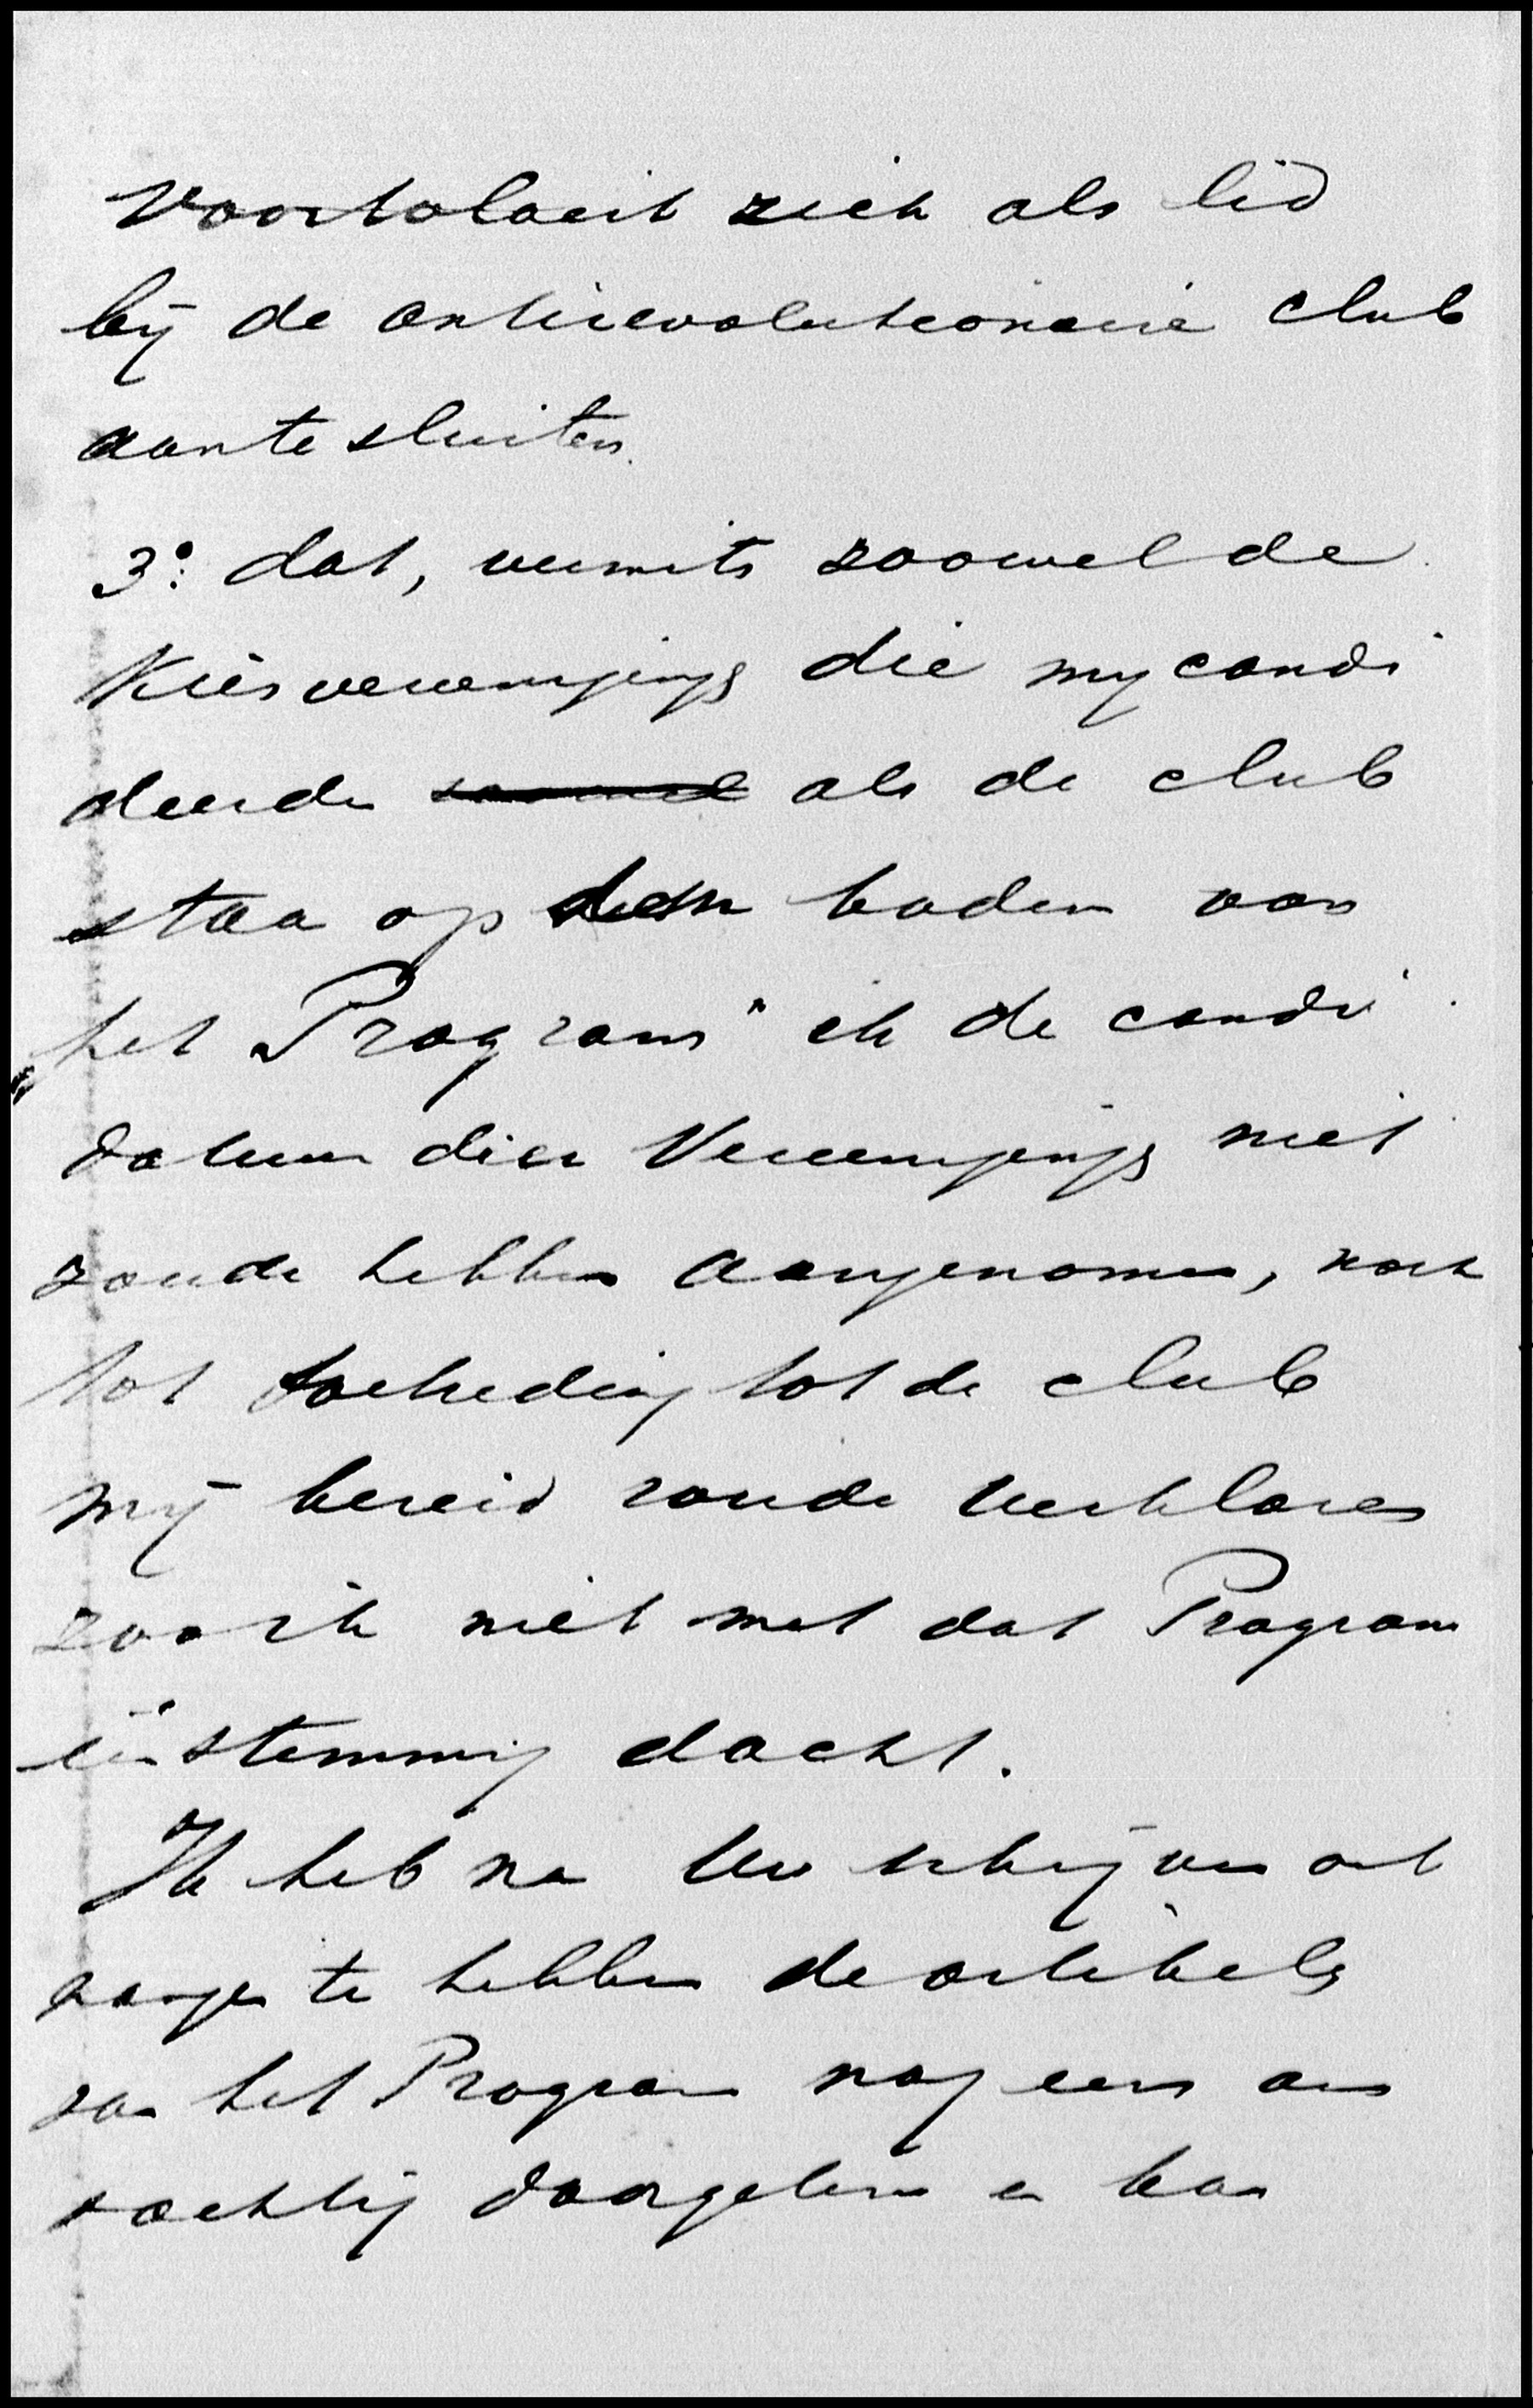 voortolaeit zich als lid
bij de antirevolutionaire club
aante sluiten.
3º. dat, vermits zoowel de
Kiesvereenigings die my candi
deerde als de club
staa op den bodem van
het „Program" ik de candi
datuur dier Vereenigings niet
zoude hebben aangenomen, noch
tot toetreding tot de club
mij bereid zoude verklaren
zoo ik niet met dat Program
éénstemmig dacht.
Ik heb na Uw schrijven ont
vangen te hebben de artikels
van het Program nog eens aan
dachtig doorgelezen en kan